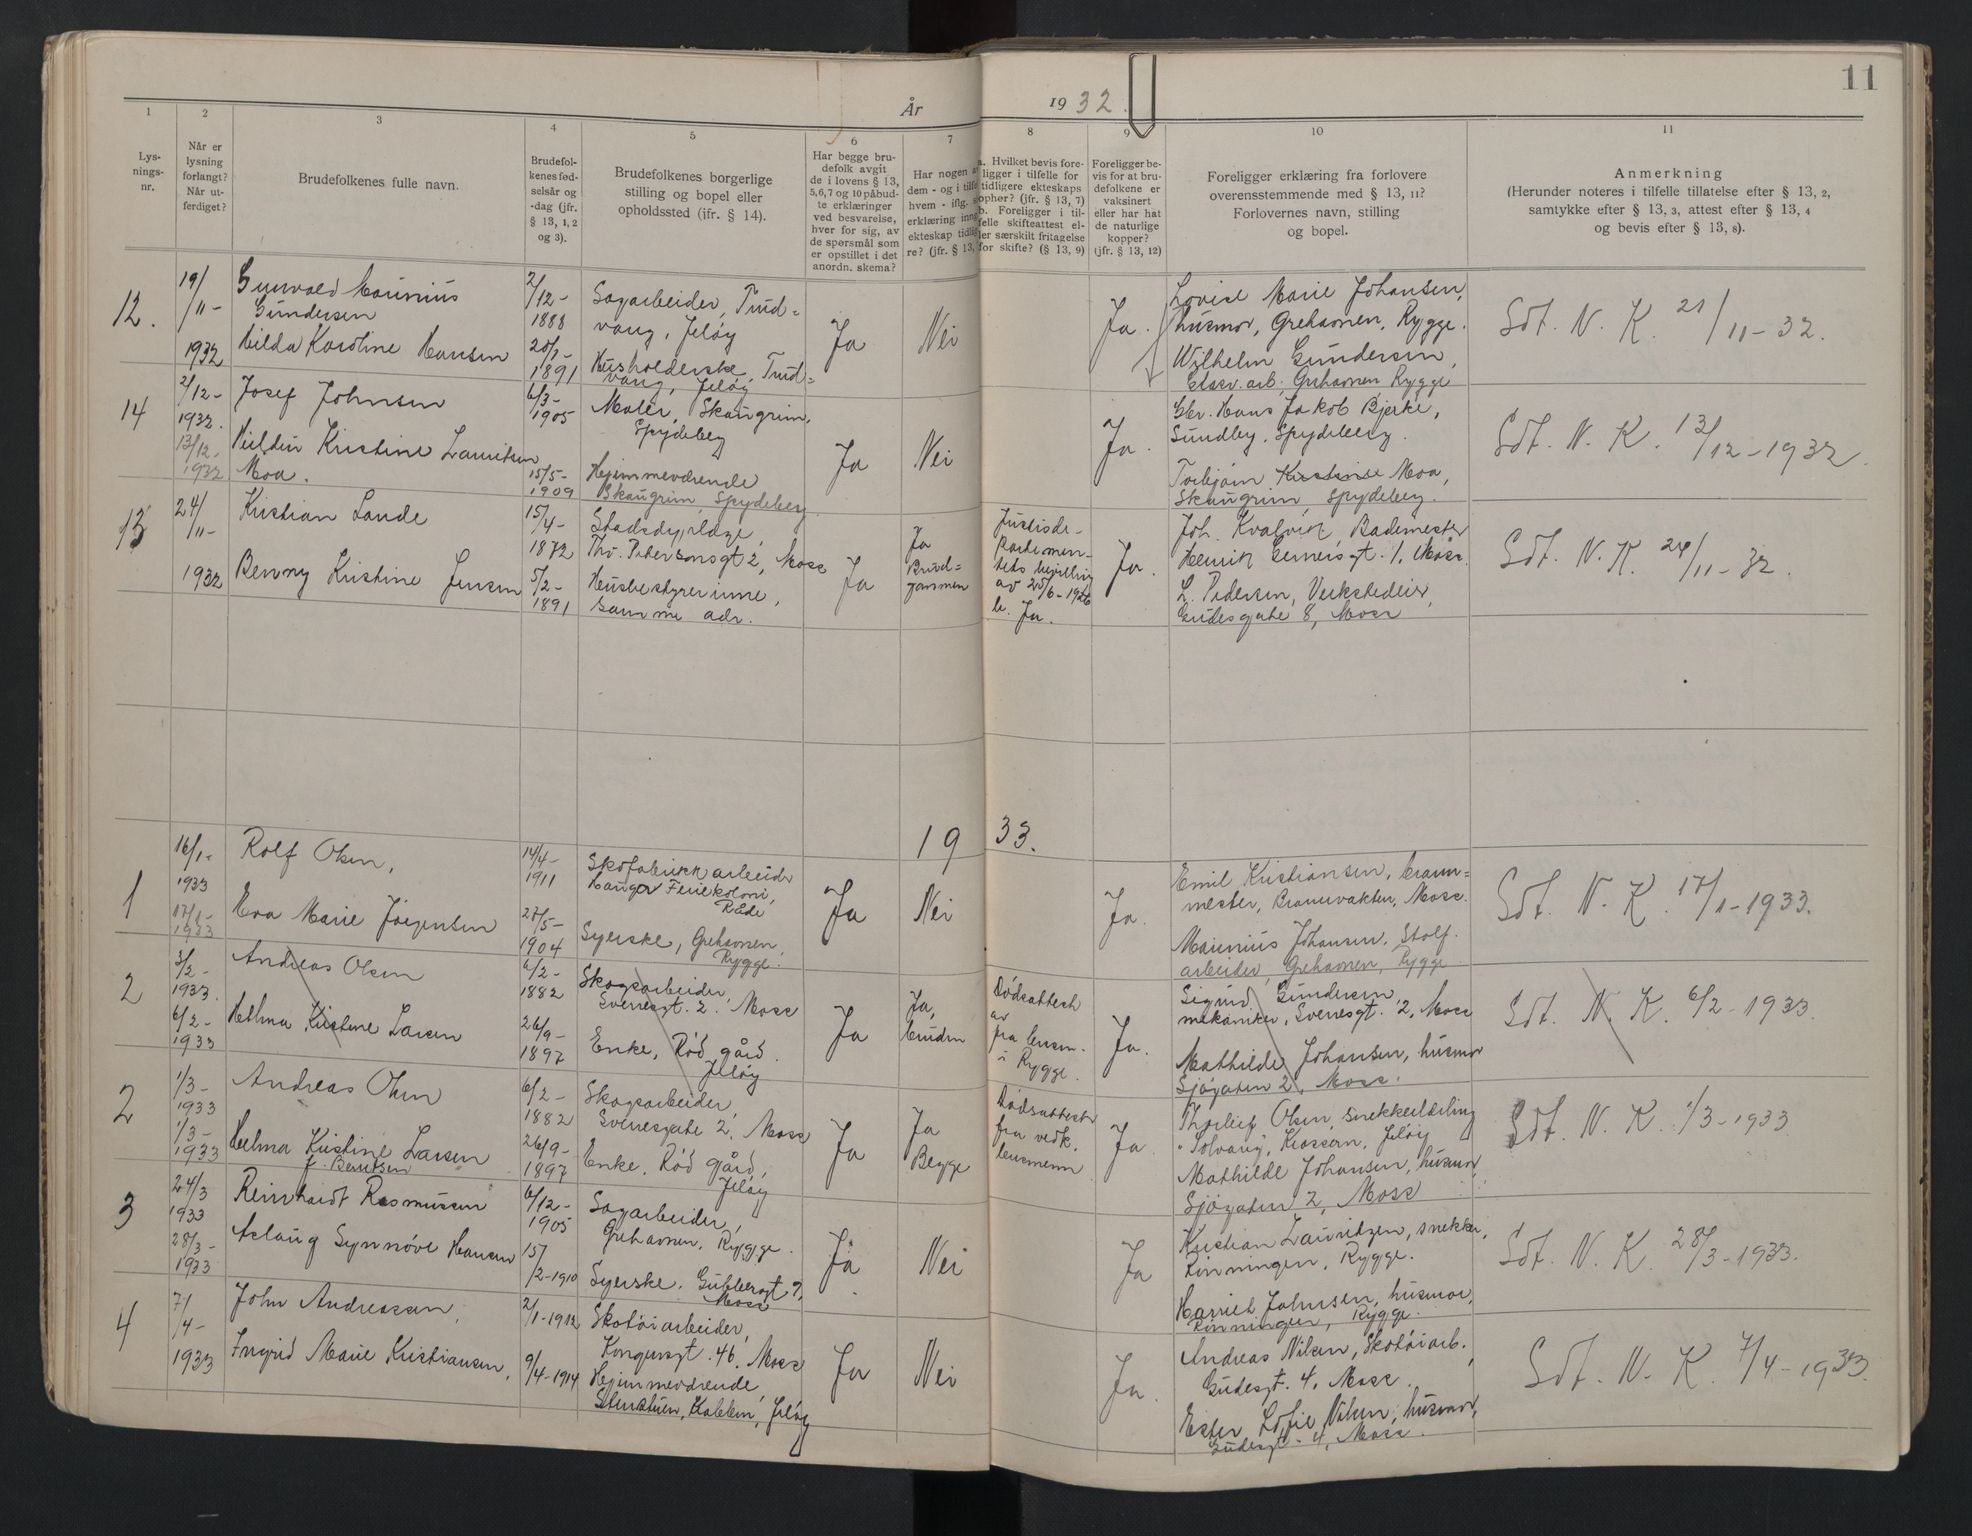 11
År 1932.
1 2 3 4 5 6 7 8 9 10 11
Lys-
nings-
nr.
Når er
lysning
forlangt?
Når ut-
ferdiget?
Brudefolkenes fulle navn.
Brudefol-
kenes fød-
selsår og
-dag (jfr.
§ 13, 1, 2
og 3).
Brudefolkenes borgerlige
stilling og bopel eller
opholdssted (ifr. § 14).
Har begge bru-
defolk avgit
de i lovens § 13,
5,6,7 og 10 påbud-
te erklæringer
ved besvarelse,
hver for sig, av
de spørsmål som
er opstillet i det
anordn. skema?
Har nogen a
dem - og i tilfe
hvem - iflg.
erklæring inng
ekteskap tidli
re? (jfr. § 13,
a. Hvilket bevis fore-
ligger i tilfelle for
tidligere ekteskaps
ophør? (jfr. § 13, 7)
b. Foreligger i til-
felle skifteattest el-
ler særskilt fritagelse
for skifte? (§ 13, 9)
Foreligger be-
vis for at bru-
defolkene er
vaksinert
eller har hat
de naturlige
kopper?
(jfr. § 13, 12)
Foreligger erklæring fra forlovere
overensstemmende med § 13, 11?
Forlovernes navn, stilling
og bopel.
Anmerkning
(Herunder noteres i tilfelle tillatelse efter § 13, 2,
samtykke efter § 13, 3, attest efter § 13, 4
og bevis efter § 13, 8).
12.
19/
/11-
1932
Gunvald Maurnius
Gundersen
Hilda Karoline Hansen
2/
/12-
1888
20/1-
1891
Sagarbeider, Trud=
vang, Jeløy
Husholderske, Trud=
vang, Jeløy
Ja
Nei
Ja.
Lovise Marie Johansen,
husmor, Grehavnen, Rygge.
Wilhelm Gundersen,
Glasv.arb, Grehavnen Rygge
Sdt. N. K. 21/11-32.
14
2/12-
1932.
13/12-
1932
Josef Johnsen
Kristine Lauritsen
Moa.
6/3-
1905
15/5-
1909
Maler, Skaugrim,
Spydeberg
Hjemmeværende
Skaugrim, Spydeberg
Ja
Nei
Ja.
Gbr. Hans Jakob Bjerke,
Sundby, Spydeberg.
Torbjørn Kristine Moa,
Skaugrim, Spydeberg.
Sdt. N. K. 13/12-1932.
13
24/
11-
1932
Kristian Lande
Benny Kristine Jensen
15/
/4-
1872
5/2-
1891
Stadsdyrlæge,
Thv. Petersonsgt 2, Moss
Husbestyrerinne,
samme adr.
Ja
Ja
Brud=
gommen
Justisde-
partemen-
tets bevilling
av 25/6-1926
b. Ja.
Ja.
Joh. Kvalvik, Bademester
Henrik Gernersgt. 1, Moss.
L. Pedersen, Verkstedeier,
Gudesgate 8, Moss
Sdt. N. K. 24/11-32.
1933.
1
16/1-
1933
17/1-
1933
Rolf Olsen,
Eva Marie Jørgensen
14/4-
1911
27/5-
1904
Skofabrikkarbeider
Hauger Feriekoloni,
Råde
Syerske, Grehavnen,
Rygge.
Ja
Nei
Ja.
Emil Kristiansen, brann=
mester, Brannvakten, Moss.
Maurnius Johansen, Stolf.
arbeider, Grehavnen, Rygge
Sdt. N. K. 17/1-1933.
2
3/2-
1933.
6/2-
1933
Andreas Olsen
Helma Kristine Larsen
6/2-
1882
26/9-
1897
Skogsarbeider,
Sverresgt. 2. Moss
Enke, Rød gård.
Jeløy
Ja
Ja,
bruden
Dødsattest
av
fra lensm.
i Rygge.
Ja.
Sigurd Gundersen,
mekaniker, Sverresgt. 2, Moss
Mathilde Johansen, husmor
Sjøgaten 2, Moss.
Sdt. N. K. 6/2-1933.
2
1/3-
1933
1/3-
1933
Andreas Olsen
Helma Kristine Larsen
f. Berntsen
6/2-
1882
26/9-
1897
Skogsarbeider,
Sverresgate 2, Moss
Enke, Rød gård,
Jeløy
Ja
Ja
Begge
Dødsattest
fra vedk.
lensmenn
Ja.
Thorleif Olsen, snekkerlærling
"Solvang", Krossern, Jeløy
Mathilde Johansen, husmor,
Sjøgaten 2, Moss
Sdt. N. K. 1/3-1933
3
24/3
1933
28/3-
1933
Reinhardt Rasmussen
Aslaug Synnøve Hansen
6/12-
1905
15/
/2-1910
Sagarbeider,
Grehavnen, Rygge.
Syerske. Gubbergt 7,
Moss
Ja.
Nei
Ja
Kristian Lauritzen, snekker,
Rinningen, Rygge.
Harriet Johnsen, husmor,
Rinningen, Rygge.
Sdt. N. K. 28/3-1933.
4
7/
/4-
1933
John Andreassen,
Ingrid Marie Kristiansen,
2/1-1912
9/4-1914
Skotøiarbeider,
Kongensgt. 46. Moss
Hjemmeværende,
Stenstuen, Kallum, Jeløy
Ja
Nei
Ja.
Andreas Nilsen, Skotøiarb.,
Gudesgt. 4, Moss.
Ester Sofie Nilsen, husmor,
Gudesgt. 4, Moss.
Sdt. N. K. 7/4-1933.